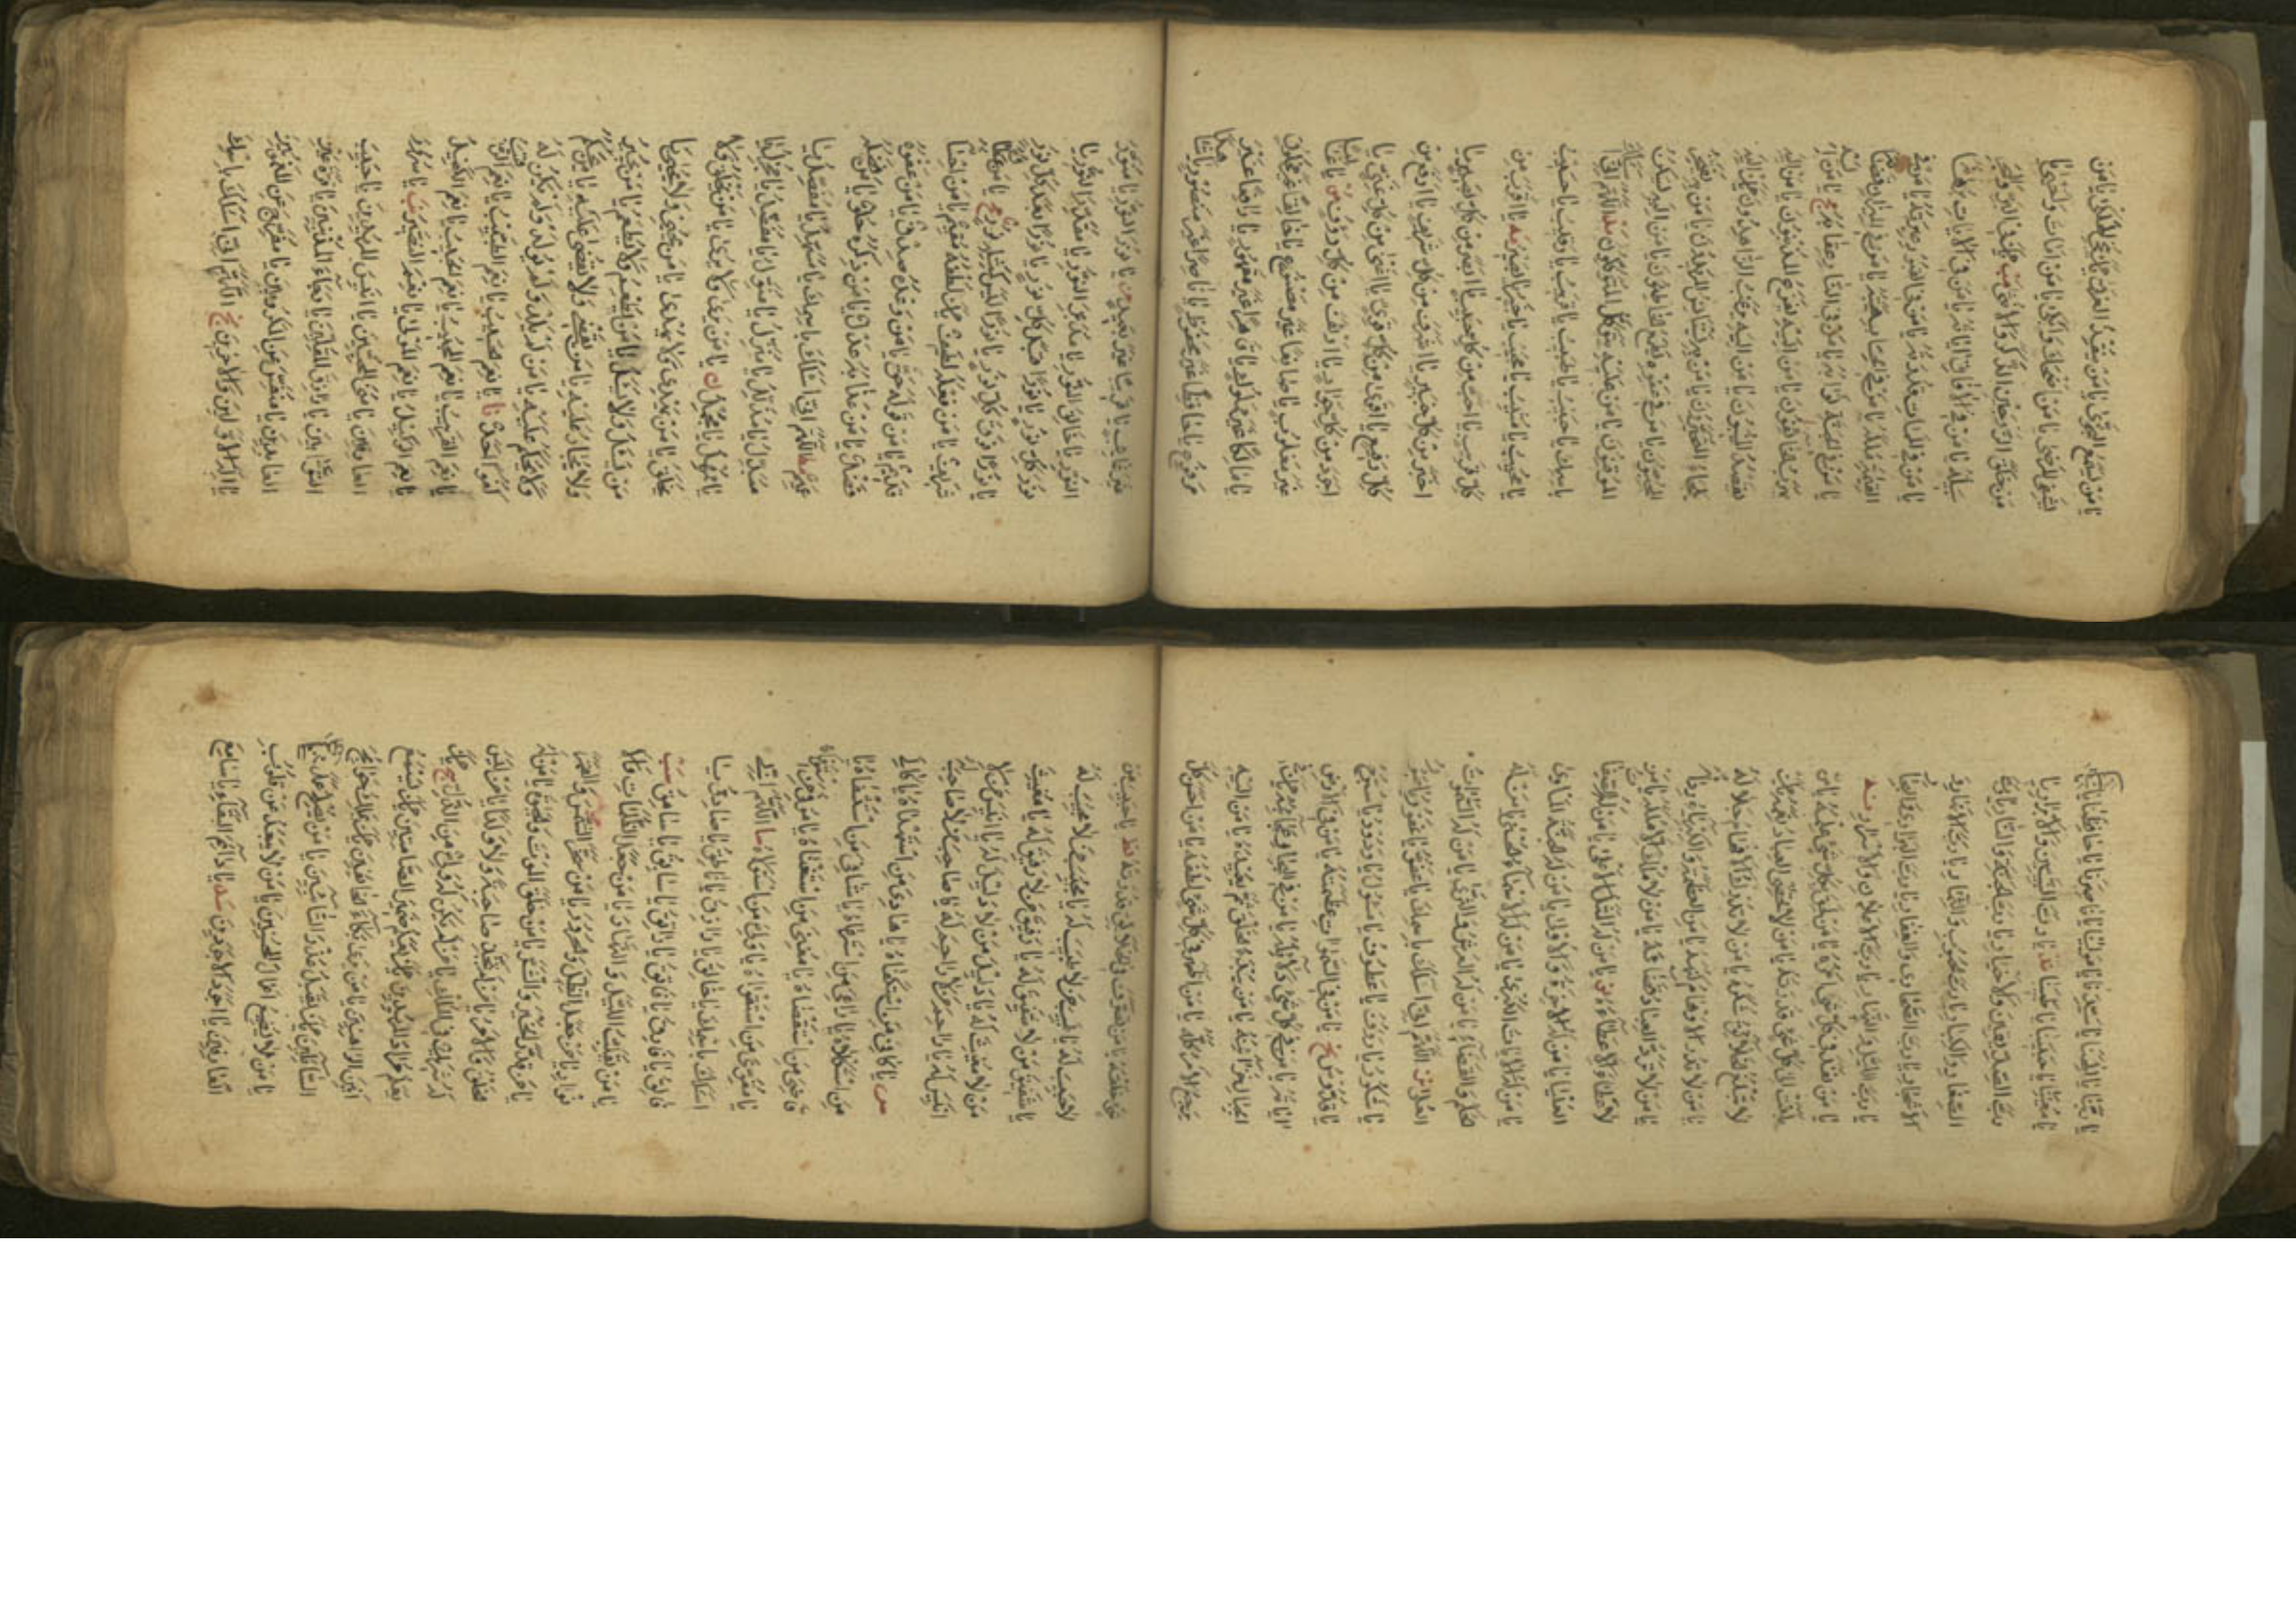 يا من يسمع النجوى يا من ينقذ الغرقى يا من ينجي الهلكى يا من
يشفي المرضى يا من اضحك وابكى يا من امات واحيى يا
من خلق الزوجين الذكر والانثى يا من في البر والبحر
سبيله يا من في الافاق اياته يا من في الايات برهانه
يا من في الممات قدرته يا من في القبور عبرته يا من في
القيمة ملكه يا من في الحساب هيبته يا من في الميزان قضاؤه
يا من في الجنة ثوابه يا من في النار عقابه يا من اليه
يهرب الخائفون يا من اليه يفزع المذنبون يا من اليه
يقصد المنيبون يا من اليه يرغب الزاهدون يا من اليه
يلجاء المتحيرون يا من به يستأنس المريدون يا من به يفتخر
المحبون يا من في عفوه يطمع الخاطئون يا من اليه يسكن
الموقنون يا من عليه يتوكل المتوكلون اللهم اني اسئلك
باسمك يا حبيب يا طبيب يا قريب يا رقيب يا حسيب
يا مهيب يا مثيب يا مجيب يا خبير يا بصير يا اقرب من
كل قريب يا احب من كل حبيب يا ابصر من كل بصير يا
اخبر من كل خبير يا اشرف من كل شريف يا ارفع من
كل رفيع يا اقوى من كل قوي يا اغنى من كل غني يا
اجود من كل جواد يا ارءف من كل رؤف يا غالبا
غير مغلوب يا صانعا غير مصنوع يا خالقا غير مخلوق
يا مالكا غير مملوك يا قاهرا غير مقهور يا رافعا غير
مرفوع يا حافظا غير محفوظ يا ناصرا غير منصور يا شاهدا
غير غائب يا قريبا غير بعيد يا نور النور يا منور
النور يا خالق النور يا مدبر النور يا مقدر النور يا
نور كل نور يا نورا قبل كل نور يا نورا بعد كل نور
يا نورا فوق كل نور يا نورا ليس كمثله نور يا من عطاؤه
شريف يا من فعله لطيف يا من لطفه مقيم يا من احسانه
قديم يا من قوله حق يا من وعده صدق يا من عفوه
فضل يا من عذابه عدل يا من ذكره حلو يا من فضله
عميم اللهم اني اسئلك باسمك يا مسهل يا مفصل يا
مبدل يا مذلل يا منزل يا منول يا مفضل يا مجزل يا
يا ممهل يا مجمل يا من يرى ولا يرى يا من يخلق ولا
يخلق يا من يهدي ولا يهدى يا من يحيي ولا يحيى يا
من يسئل ولا يسئل يا من يطعم ولا يطعم يا من يجير
ولا يجار عليه يا من يقضي ولا يقضى عليه يا من يحكم
ولا يحكم عليه يا من لم يلد ولم يولد ولم يكن له
كفوا احد يا نعم الحسيب يا نعم الطبيب يا نعم الرقيب
يا نعم القريب يا نعم المجيب يا نعم الحبيب يا نعم الكفيل
يا نعم الوكيل يا نعم المولى يا نعم النصير يا سرور
العارفين يا منى المحبين يا انيس المريدين يا حبيب
التوابين يا رازق المقلين يا رجاء المذنبين يا قرة عين
العابدين يا منفس عن المكروبين يا مفرج عن المغمومين
يا اله الاولين والاخرين اللهم اني اسئلك باسمك
يا ربنا يا الهنا يا سيدنا يا مولينا يا ناصرنا يا حافظنا يا دليلنا
يا معيننا يا حبيبنا يا طبيبنا يا رب النبيين والابرار يا
رب الصديقين والاخيار يا رب الجنة والنار يا رب
الصغار والكبار يا رب الحبوب والثمار يا رب الانهار و
الاشجار يا رب الصحاري والقفار يا رب البراري والبحار
يا رب الليل والنهار يا رب الاعلان والاسرار
يا من نفذ في كل شيء امره يا من لحق بكل شيء علمه يا من
بلغت الى كل شيء قدرته يا من لا تحصي العباد نعمه
لا تبلغ الخلائق شكره يا من لا تدرك الافهام جلاله
يا من لا تنال الاوهام كنهه يا من العظمة والكبرياء رداؤه
يا من لا ترد العباد قضاءه يا من لا ملك الا ملكه يا من
لا عطاء الا عطاؤه يا من له المثل الاعلى يا من له الصفات
العليا يا من له الاخرة والاولى يا من له الجنة المأوى
يا من له الايات الكبرى يا من له الاسماء الحسنى يا من له
الحكم والقضاء يا من له العرش والثرى يا من له السموات
العلى اللهم اني اسئلك باسمك يا عفو يا غفور يا صبور
يا شكور يا رؤف يا عطوف يا مسئول يا ودود يا سبوح
يا قدوس يا من في السماء عظمته يا من في الارض
اياته يا من في كل شيء دلائله يا من في البحار عجائبه
يا من في الجبال خزائنه يا من يبدء الخلق ثم يعيده يا من اليه
يرجع الامر كله يا من اظهر في كل شيء لطفه يا من احسن كل
شيء خلقه يا من تصرف في الخلائق قدرته يا حبيب من
لا حبيب له يا طبيب من لا طبيب له يا مجيب من لا مجيب له
يا شفيق من لا شفيق له يا رفيق من لا رفيق له يا مغيث
من لا مغيث له يا دليل من لا دليل له يا انيس من لا
انيس له يا راحم من لا راحم له يا صاحب من لا صاحب له
يا كافي من استكفاه يا هادي من استهداه يا كالئ
من استكلاه يا راعي من استرعاه يا شافي من استشفاه يا
قاضي من استقضاه يا مغني من استغناه يا موفي من استوفاه
يا مقوي من استقواه يا ولي من استولاه اللهم اني
اسئلك باسمك يا خالق يا رازق يا ناطق يا صادق يا
فالق يا فارق يا فاتق يا راتق يا سابق يا سامق
يا من يقلب الليل والنهار يا من جعل الظلمات والانوار
يا من خلق الظل والحرور يا من سخر الشمس والقمر
يا من قدر الخير والشر يا من خلق الموت والحيوة يا من له
الخلق والامر يا من لم يتخذ صاحبة ولا ولدا يا من ليس
له شريك في الملك يا من لم يكن له ولي من الذل يا من
يعلم مراد المريدين يا من يعلم ضمير الصامتين يا من يسمع
انين الواهنين يا من يرى بكاء الخائفين يا من يملك حوائج
السائلين يا من يقبل عذر التائبين يا من لا يصلح عمل المفسدين
يا من لا يضيع اجر المحسنين يا من لا يبعد عن قلوب
العارفين يا اجود الاجودين يا دائم البقاء يا سامع